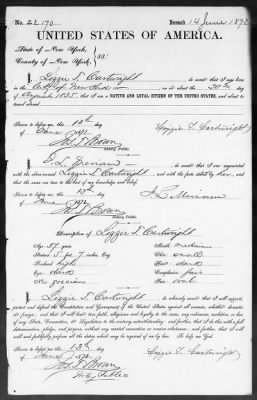 No. 22170 Issued 14 June 1872
UNITED STATES OF AMERICA.
State of New York,
County of New York, ss:
I, Lizzie S. Cartwright, do swear that I was born
in City of New York on or about the 20th
1835 that I am a NATIVE AND LOYAL CITIZEN OF THE UNITED STATES, and about
to travel abroad.
Sworn to before me, this 13th
day of June 1872 Lizzie S. Cartwright
Jos. T. Brown
Notary Public.
I, do swear that I am acquainted
with the above-named Lizzie S. Cartwright and that the facts stated by her, and
are true to the best of my knowledge and belief.
Sworn to before me, this 13th
day of June 1872
Jos. T. Brown
Notary Public.
Description of Lizzie S. Cartwright
Age: 37 years Mouth: medium
Stature: 5 ft 7 inches, Eng. Chin: small
Forehead: high Hair: dark
Eyes: dark Complexion: fair
Nose: grecian Face: oval
I, Lizzie S. Cartwright do solemnly swear that I will support,
protect and defend the Constitution and Government of the United States against all enemies, whether domestic
or foreign; and that I will bear true faith, allegiance and loyalty to the same, any ordinance, resolution or law
of any State, Convention, or Legislature to the contrary notwithstanding; and further, that I do this with a full
determination, pledge, and purpose, without any mental reservation or evasion whatsoever; and further, that I will
well and faithfully perform all the duties which may be required of me by law. So help me God.
Sworn to before me, this 13th
day of June 1872 Lizzie S. Cartwright
Jos. T. Brown
Notary Public